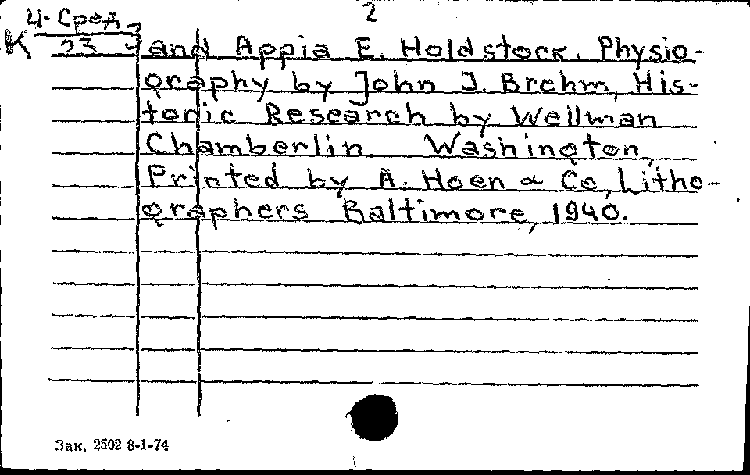 2
Ц-Сред
К 23-5
and Appia E. Holdstock. Physio-
graphy by John J. Brehm, His-
toric Research by Wellman
Chamberlin Washington,
Printed by A. Hoen & Co, Litho-
graphers Baltimore, 1940.
Зак. 2502 8-1-74